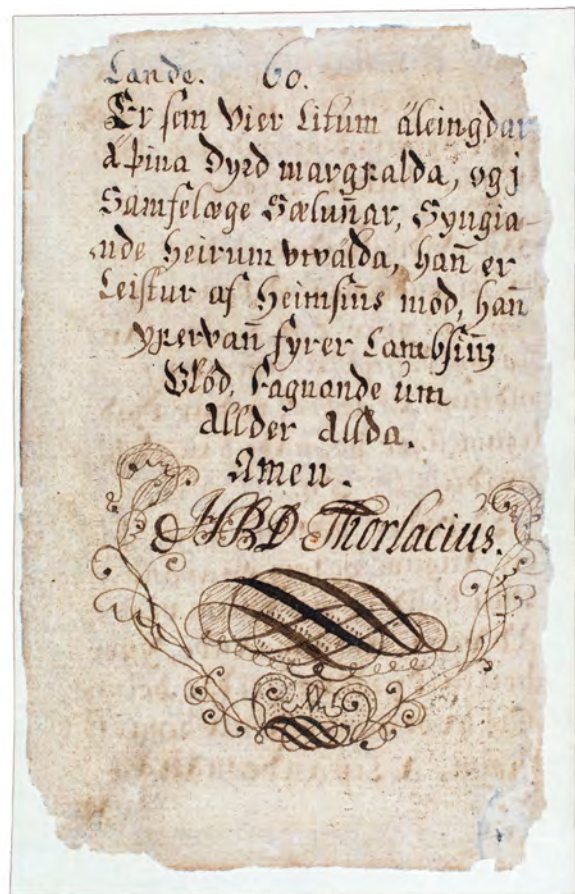 Lande. 60.
Er sem Vier Litum áleingdar
á þina Dyrd margfalda, og j
Samfelæge Sælun̄ar, Syngia-
nde Heirum vtvalda, han̄ er
Leistur af Heimsin̄s mód, han̄
yfervan̄ fyrer Lambsin̄s
Blód, Fagnande um
Allder Allda.
Amen.
HBD Thorlacius.